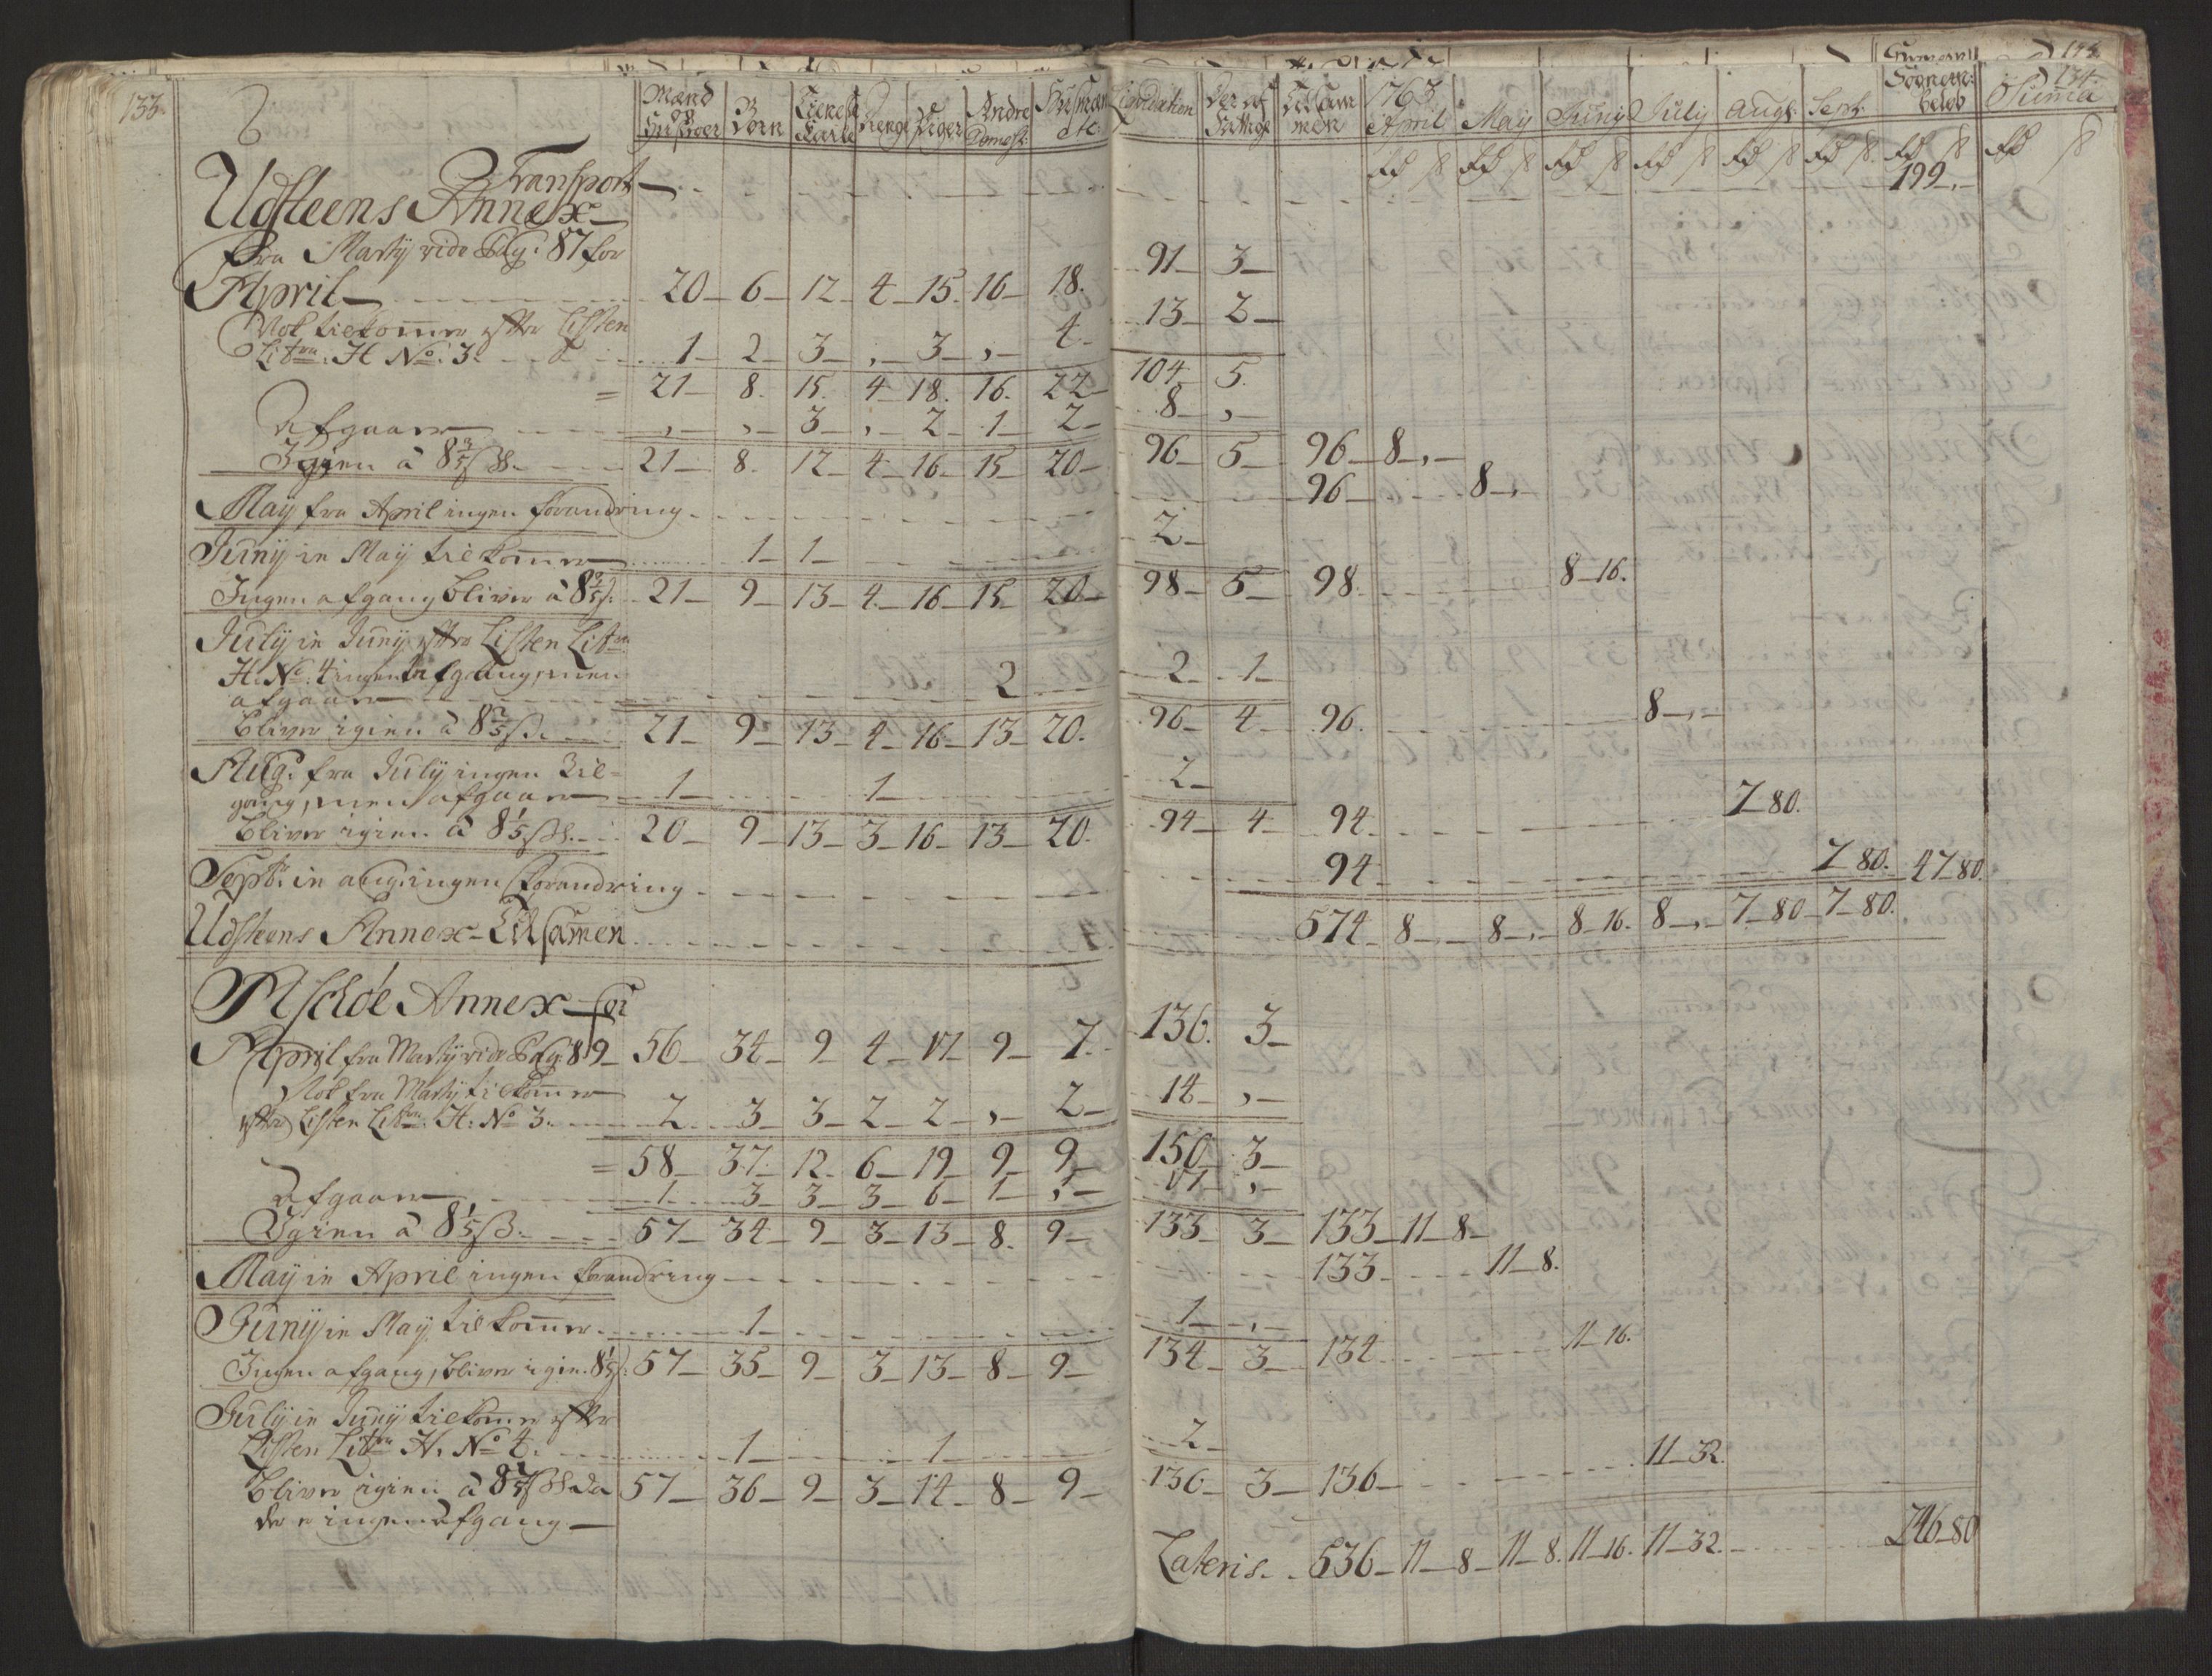 133.
134.
Mænd og Hustroer | Børn | Tieneste Karle | Drenge | Piger | Andre Domest: | Husmænd etc: | Liqvidation | Der af Fattige | Tilsammen | 1763 April | May | Juny | July | Augt: | Sept: | Sognens beløb | Summa
Rd ß Rd ß Rd ß Rd ß Rd ß Rd ß Rd ß Rd ß
Transport — 199 „
Udsteens Annex —
fra Marty vide Pag: 87 for
April — 20 — 6 — 12 — 4 — 15 — 16 — 18. 91 — 3 —
Nok tilkom̄er efter Listen
Litra: H No: 3. 1 — 2 — 3 — „ — 3 — „ — 4 — 13 — 2 —
= 21 — 8. 15. 4 — 18. 16. 22 — 104 5.
Afgaar „ — „ — 3 — „ — 2 — 1 — 2 — 8 — „ —
Igien à 8 2/5 ß. 21 — 8. 12 — 4 — 16 — 15 — 20 — 96 — 5 — 96 — 8 — „ —
May fra April ingen forandring 96 — 8 — „ —
Juny in May tilkom̄er 1 1 2 —
Ingen afgang bliver à 8 2/5 ß. 21 — 9 — 13 — 4 — 16 — 15 — 20 — 98 — 5 — 98. 8 — 16.
July in Juny efter Listen Litra
H. No. 4 ingen tilgang, men
afgaar 2 2 — 1 —
bliver igien à 8 2/5 ß. 21 — 9 — 13 — 4 — 16 — 13 — 20. 96 — 4 — 96. 8 — „ —
Aug: fra July ingen Til=
gang, men afgaar 1 — 1 — 2 —
bliver igien à 8 1/5 ß. 20 — 9 — 13 — 3 — 16 — 13 — 20. 94 — 4 — 94. 7 80.
Septr: in aug: ingen forandring 94 — 7 80. 47 80.
Udsteens Annex — Tilsamen 574 — 8 — „ — 8 — „ — 8 — 16. 8 — „ — 7 — 80 — 7 — 80.
Aschøe Annex — for
April fra Marty vide Pag: 89 — 56 — 34 — 9 — 4 — 17 — 9 — 7. 136. 3 —
Nok fra Marty tilkom̄er
efter Listen Litra: H: No 3. 2 3 3 — 2 — 2 — „ — 2 — 14 — „ —
= 58 — 37. 12. 6 — 19 — 9 — 9 — 150 — 3 —
Afgaar 1 3 — 3 — 3 — 6 — 1 — „ — 17 — „ —
Igien à 8 1/5 ß. 57 — 34 — 9 — 3 — 13 — 8. 9 — 133 — 3 — 133 — 11 — 8 —
May in April ingen forandring 133 11 — 8.
Juny in May tilkom̄er 1 — 1 — „ —
Ingen afgang, bliver igien 8 1/5 ß: 57 — 35 — 9 — 3 — 13 — 8 — 9 — 134 — 3 — 134 11 — 16.
July in Juny tilkom̄er efter
Listen Litra H. No 4. 1 — 1 — 2 —
bliver igien à 8 1/5 ß da 57 — 36 — 9 — 3 — 14 — 8 — 9 — 136 — 3 — 136 — 11 — 32.
der ingen afgang —
Lateris. 536 — 11 — 8 — 11 — 8. 11 — 16. 11 — 32. 246 — 80